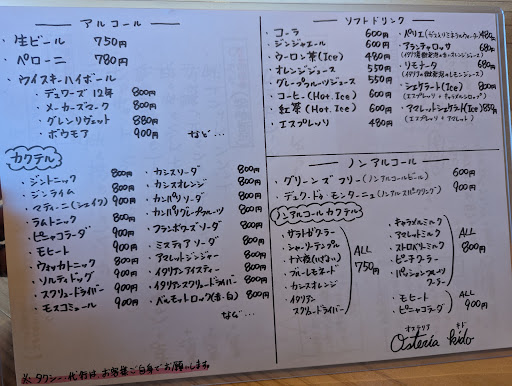 アルコール
・生ビール 750円
・ペローニ 780円
・ウイスキーハイボール
・デュワーズ 12年 800円
・メーカーズマーク 800円
・グレンリヴェット 880円
・ボウモア 900円
など…
カクテル
・ジントニック 800円
・ジンライム 800円
・マティーニ(シェイク) 900円
・ラムトニック 800円
・ピニャコラーダ 900円
・モヒート 900円
・ウォッカトニック 800円
・ソルティドッグ 900円
・スクリュードライバー 800円
・モスコミュール 900円
・カシスソーダ 800円
・カシスオレンジ 800円
・カンパリソーダ 800円
・カンパリグレープフルーツ 800円
・フランボワーズソーダ 800円
・ミスティアソーダ 800円
・アマレットジンジャー 800円
・イタリアンアイスティー 800円
・イタリアンスクリュードライバー 800円
・ベルモットロック(赤・白) 800円
など…
※タクシー・代行は、お客様ご自身でお願いします。
ソフトドリンク
・コーラ 600円
・ジンジャエール 600円
・ウーロン茶(Ice) 480円
・オレンジジュース 550円
・グレープフルーツジュース 550円
・コーヒー(Hot.Ice) 600円
・紅茶(Hot.Ice) 600円
・エスプレッソ 480円
・ペリエ 480円
・アランチャロッサ 680円
・リモナータ 680円
・シェケラート(Ice) 800円
(エスプレッソ+キャラメルシロップ)
・アマレットシェケラート(Ice) 850円
(エスプレッソ+アマレット)
ノンアルコール
・グリーンズフリー(ノンアルコールビール) 600円
・デュク・ドゥ・モンターニュ(ノンアルスパークリング) 900円
ノンアルコールカクテル
・サラトガクーラー
・シャーリーテンプル
・十六夜(いざよい)
・ブルーレモネード
・カシスオレンジ
・イタリアン
スクリュードライバー
ALL 750円
・キャラメルミルク
・アマレットミルク
・ストロベリーミルク
・ピーチクーラー
・パッションフルーツ
クーラー
ALL 800円
・モヒート
・ピニャコラーダ
ALL 900円
オステリア キド
Osteria kido